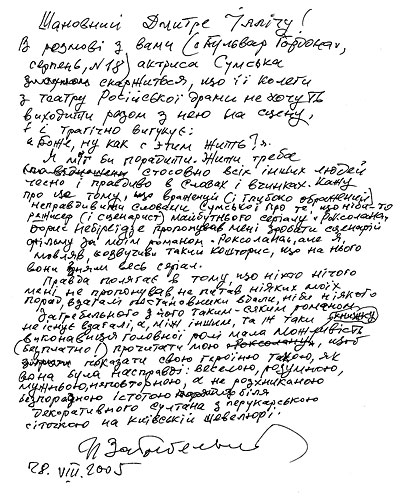 Шановний Дмитре Іллічу!
В розмові з вами („Бульвар Гордона",
серпень, N18) актриса Сумська
скаржиться, що її колеги
з театру Російської драми не хочуть
виходити разом з нею на сцену,
і трагічно вигукує:
„Боже, ну как с этим жить?".
Я міг би порадити. Жити треба
стосовно всіх інших людей
чесно і правдиво в словах і вчинках. Кажу
про це тому, що вражений (і глибоко ображений)
неправдивими словами Сумської про те, що ніби-то
режисер (і сценарист) майбутнього серіалу „Роксолана"
Борис Небієрідзе пропонував мені зробити сценарій
фільму за моїм романом „Роксолана", але я,
мовляв, заявив такий кошторис, що на нього
вони зняли весь серіал.
Правда полягає в тому, що ніхто нічого
мені не пропонував, не питав ніяких моїх
порад, взагалі постановники вдали, ніби ніякого
Загребельного з його таким-сяким романом
не існує взагалі, а, між іншим, та ж таки книжку
виконавиця головної ролі мала можливість
(безплатно!) прочитати мою Роксолану, щоб
показати свою героїню такою, як
вона була насправді: веселою, розумною,
мужньою, неповторною, а не розхниканою
безпорадною істотою біля
декоративного султана з перукарською
сіткою на київській шевелюрі.
П. Загребельний
28.VIII.2005